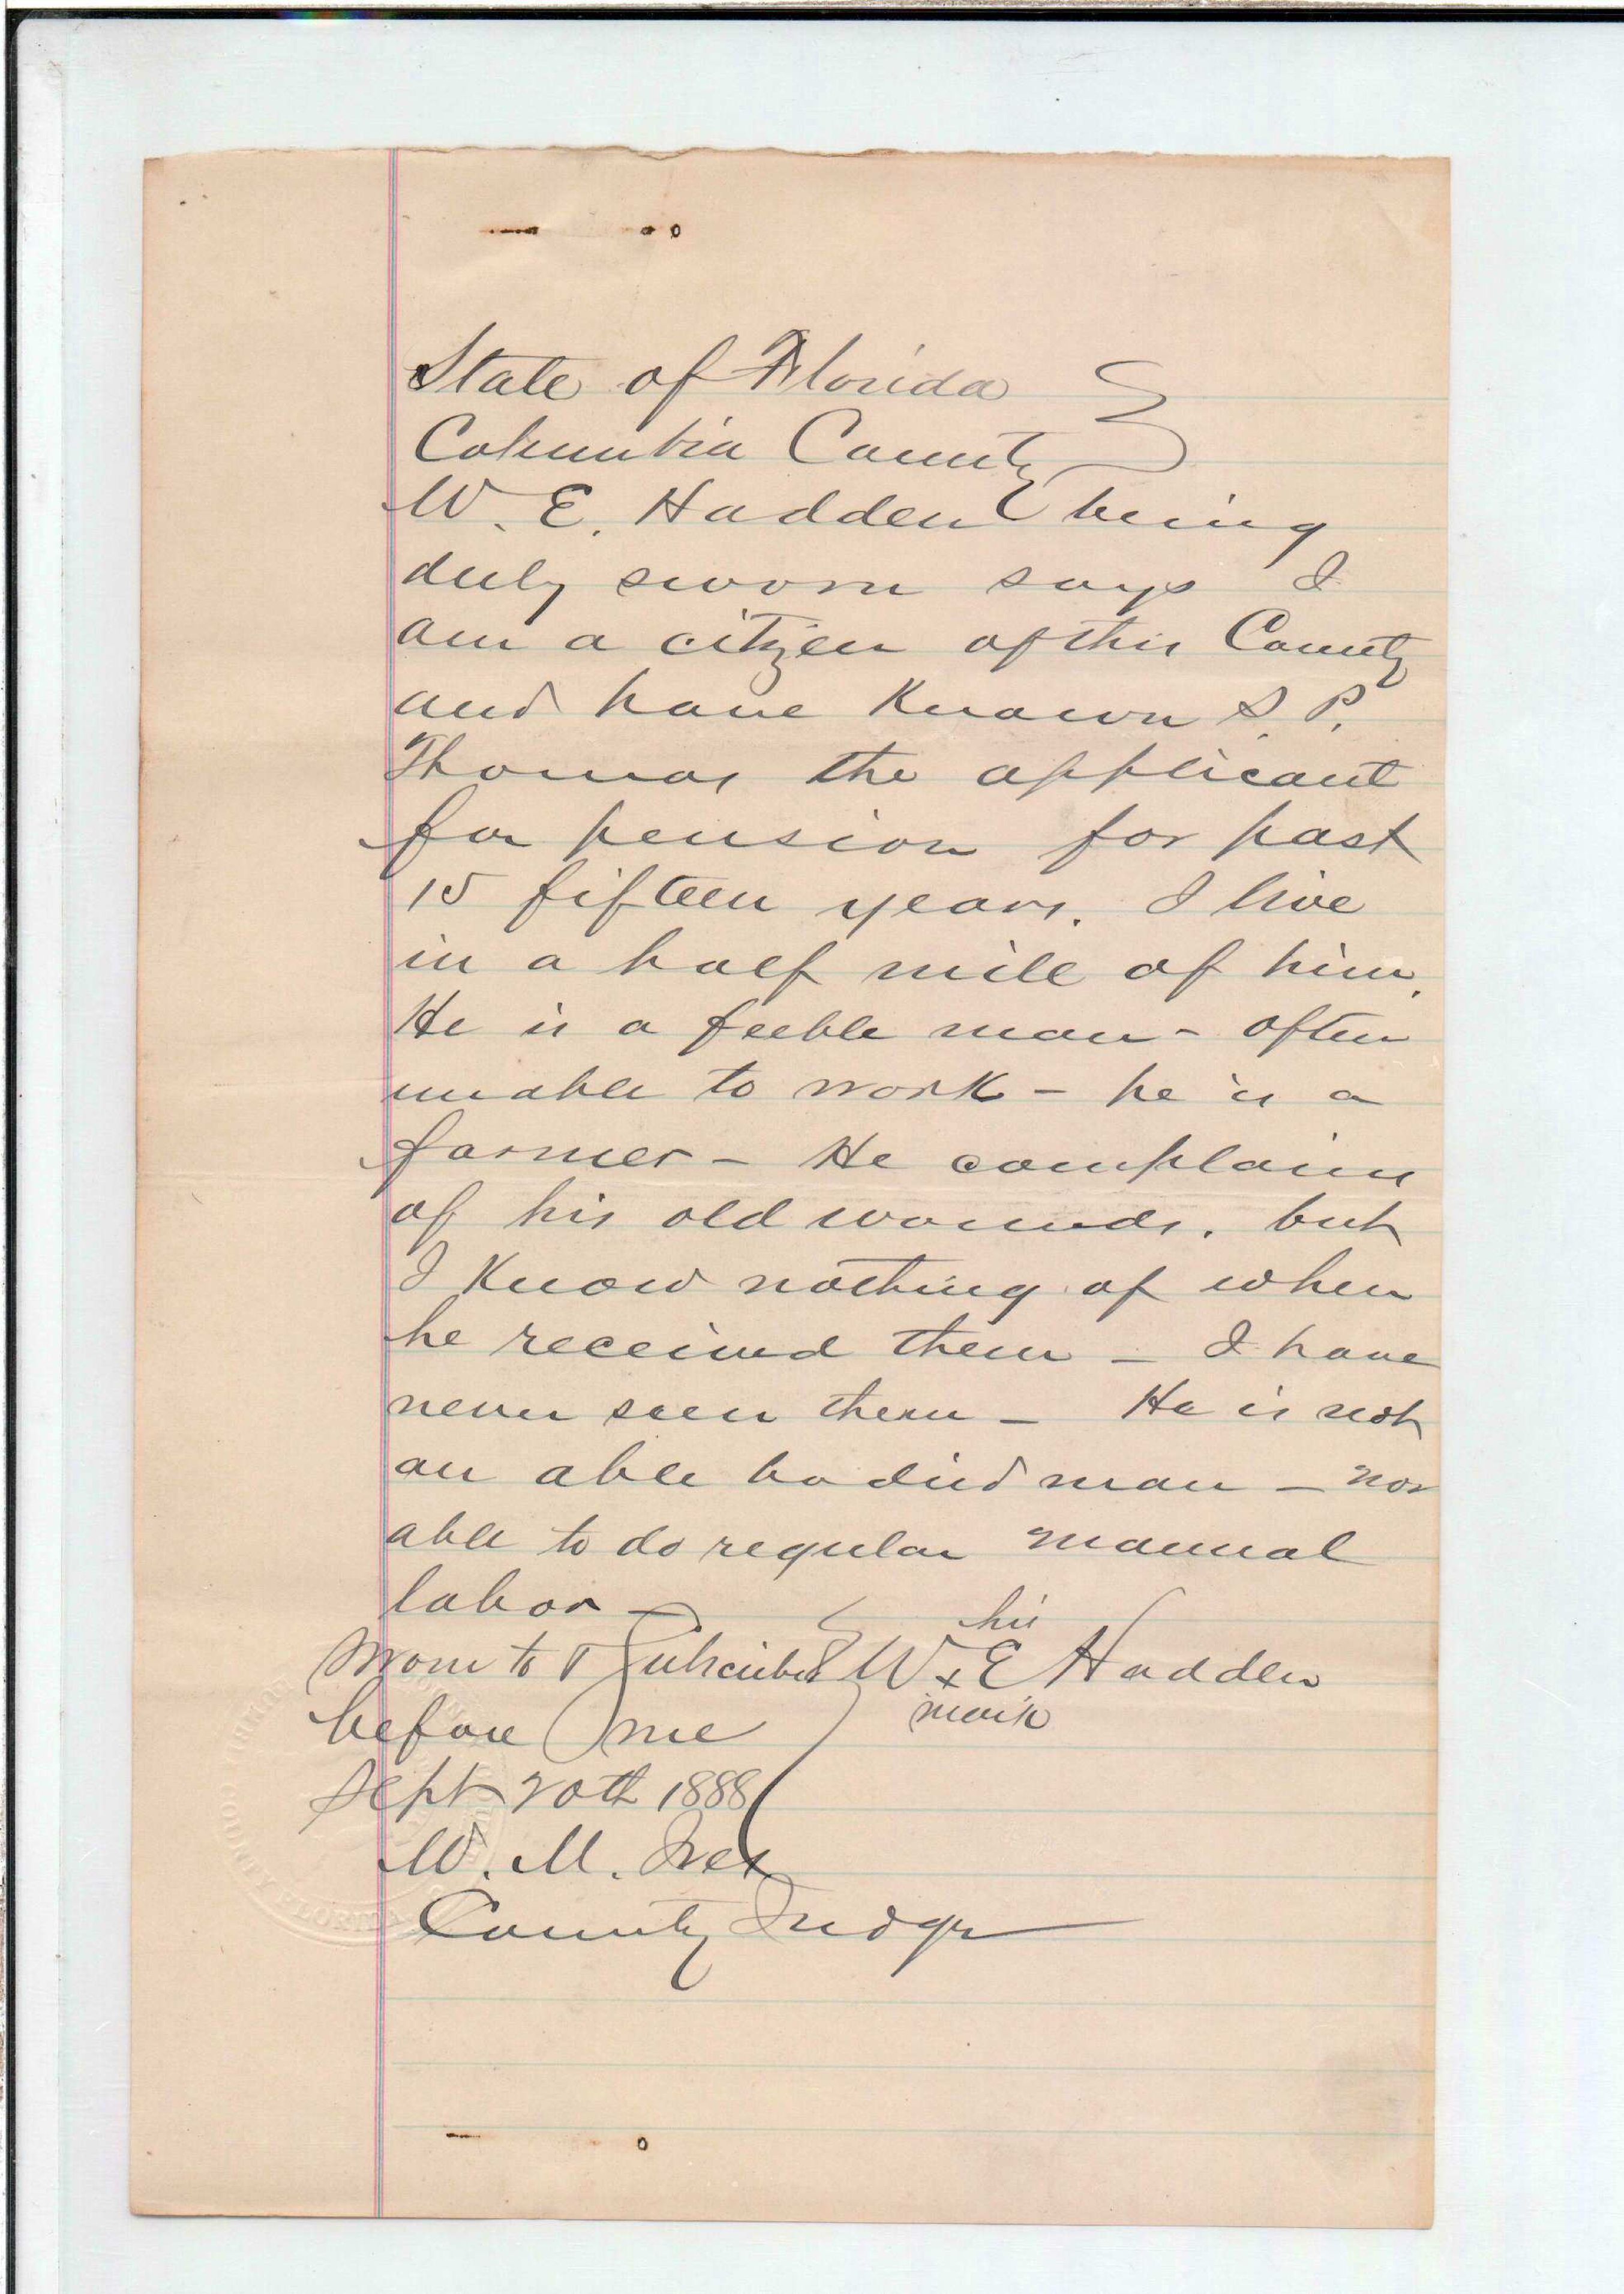 State of Florida
Columbia County
W. E. Hadden being
duly sworn says I
am a citizen of this County
and have Known S. P.
Thomas the applicant
for pension for past
15 fifteen years. I live
in a half mile of him.
He is a feeble man - often
unable to work - he is a
farmer - He complains
of his old wounds. but
I Know nothing of when
he received them - I have
never seen them - He is not
an able bodied man - nor
able to do regular manual
labor -
his
Sworn to & Subscribed W x E Hadden
before me mark
Sept 20th 1888
W. M. Ives
County Judge